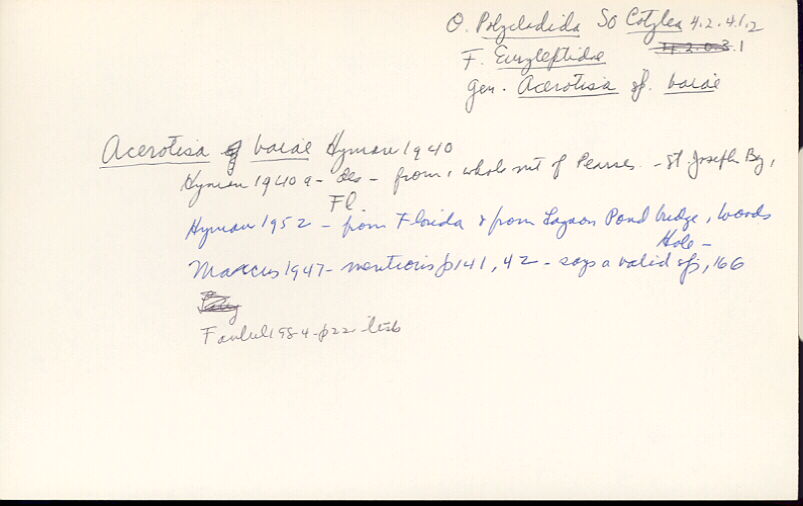 O. Polycladida SO Cotylea 4.2.4.1.2
4.2.0.3.1
F. Euryleptidae
gen. Acerotisa sp. baiae
Acerotisa baiae Hyman 1940
Hyman 1940a - des - from 1 whole mt of Pearse - St Joseph Bay,
Fl
Hyman 1952 - from Florida & from Lagoon Pond bridge, Woods
Hole -
Marcus 1947 - mentions p141, 42 - says a valid sp, 166
Faubel 1984 - p22 - lists